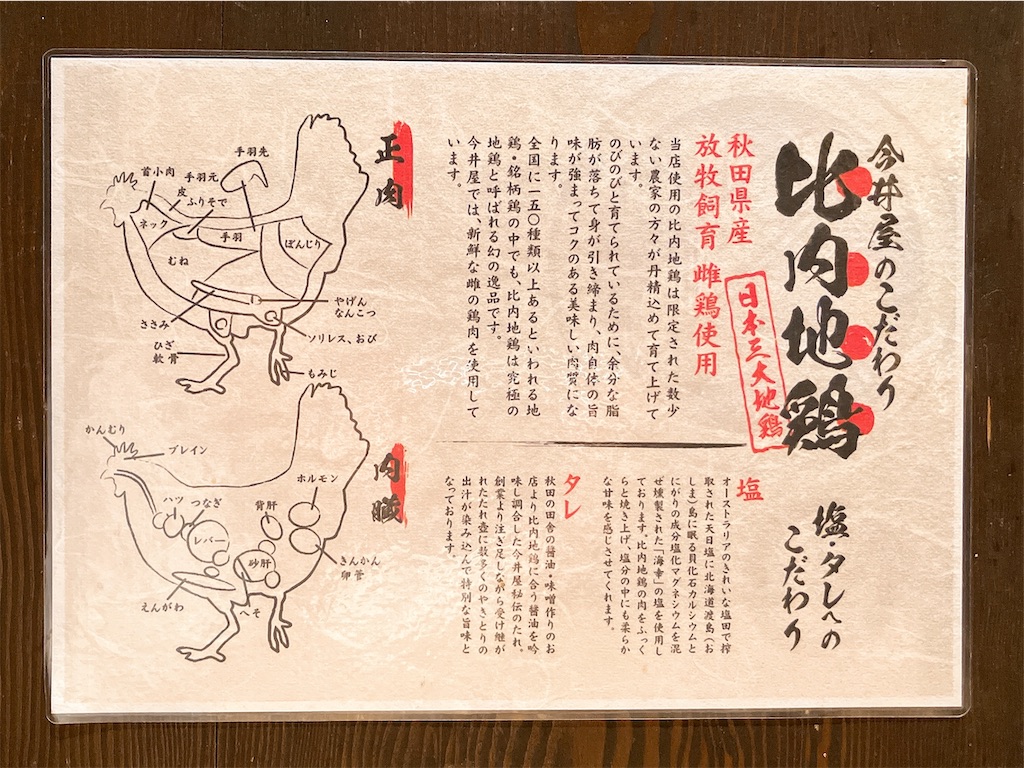 今井屋のこだわり
比内地鶏
日本三大地鶏
秋田県産
放牧飼育 雌鶏使用
当店使用の比内地鶏は限定された数少
ない農家の方々が丹精込めて育て上げて
います。
のびのびと育てられているために、余分な脂
肪が落ちて身が引き締まり、肉自体の旨
味が強まってコクのある美味しい肉質にな
ります。
全国に一五〇種類以上あるといわれる地
鶏・銘柄鶏の中でも、比内地鶏は究極の
地鶏と呼ばれる幻の逸品です。
今井屋では、新鮮な雌の鶏肉を使用して
います。
塩・タレへの
こだわり
塩
オーストラリアのきれいな塩田で搾
取された天日塩に北海道渡島(お
しま)島に眠る貝化石カルシウムと
にがりの成分塩化マグネシウムを混
ぜ燻製された「海幸」の塩を使用し
ております。比内地鶏の肉をふっく
らと焼き上げ、塩分の中にも柔らか
な甘味を感じさせてくれます。
タレ
秋田の田舎の醤油・味噌作りのお
店より比内地鶏に合う醤油を吟
味し調合した今井屋秘伝のたれ。
創業より注ぎ足しながら受け継が
れたたれ壺に数多くのやきとりの
出汁が染み込んで特別な旨味と
なっております。
正肉
手羽先
首小肉
手羽元
皮
ふりそで
ネック
手羽
ぼんじり
むね
やげん
なんこつ
ささみ
ソリレス、おび
ひざ
軟骨
もみじ
内臓
かんむり
ブレイン
ホルモン
ハツ
つなぎ
背肝
レバー
砂肝
きんかん
卵管
えんがわ
へそ